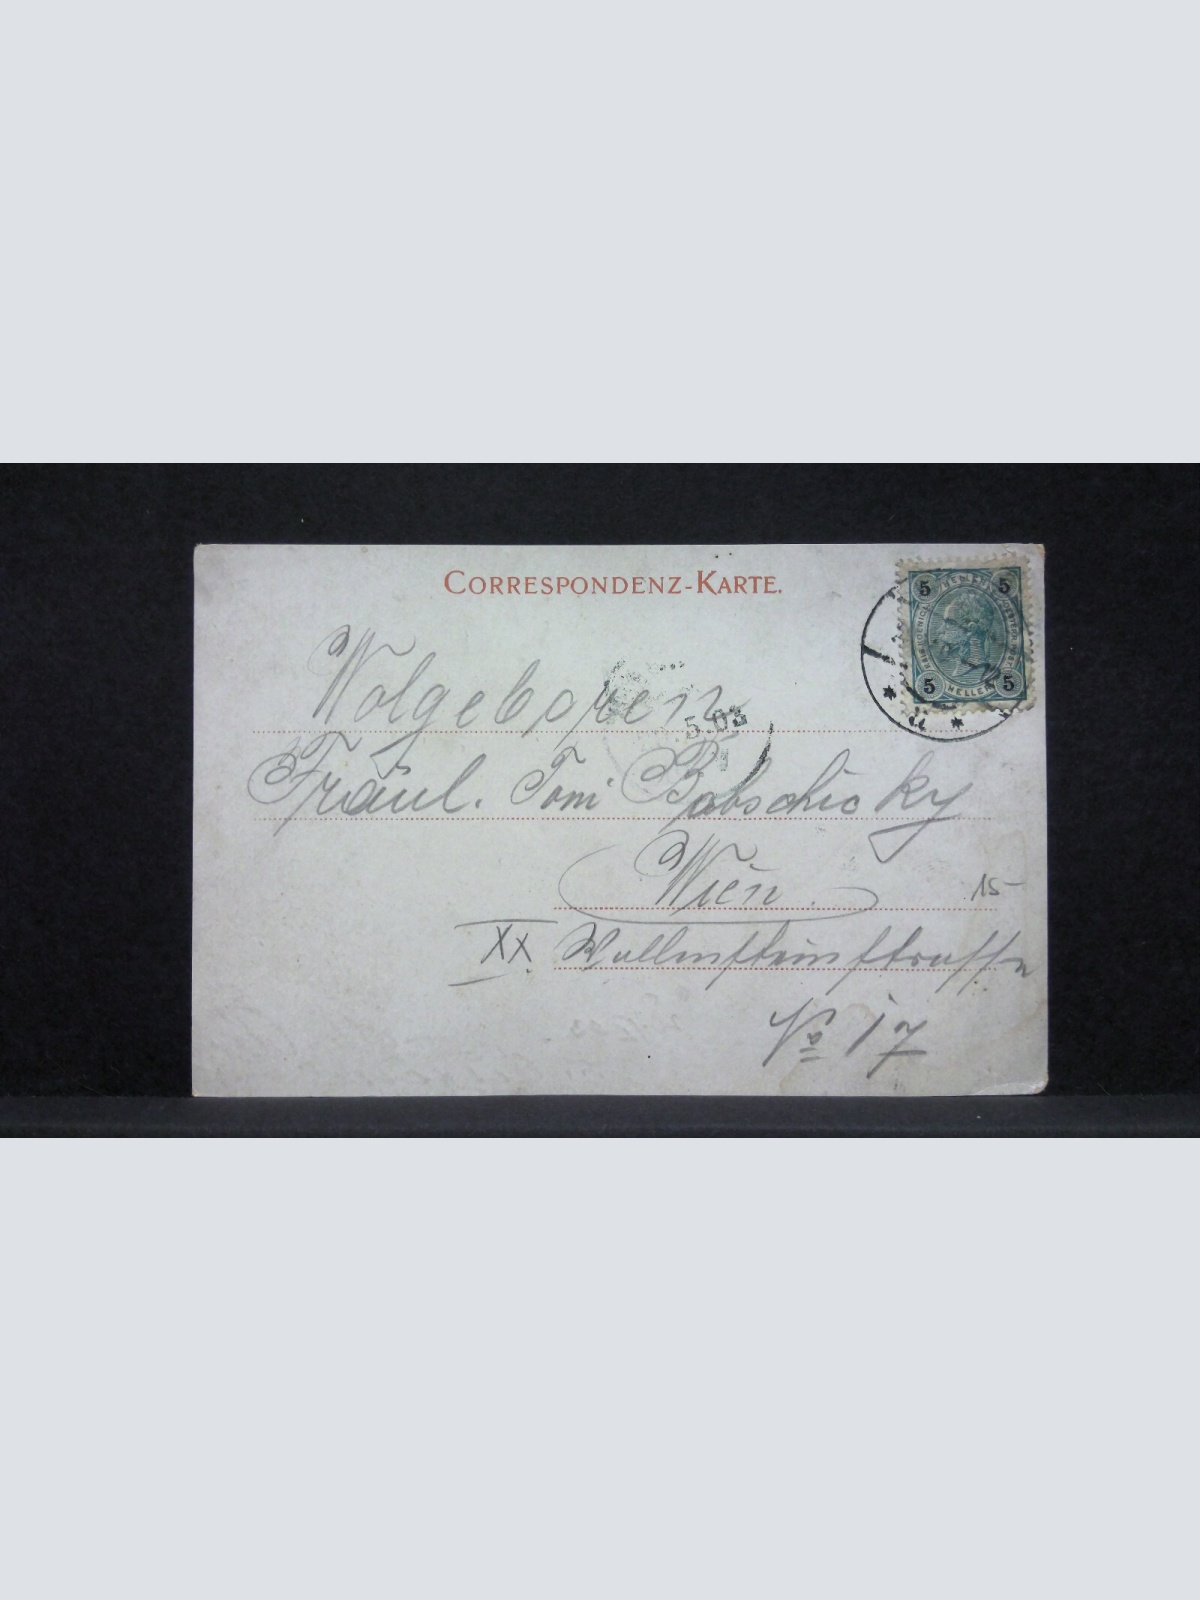 CORRESPONDENZ-KARTE.
5 5
HELLER
5 5
Wolgeboren
5.03
Fräul. Toni Babschicky
Wien.
15-
XX. Wallensteinstrasse
No 17